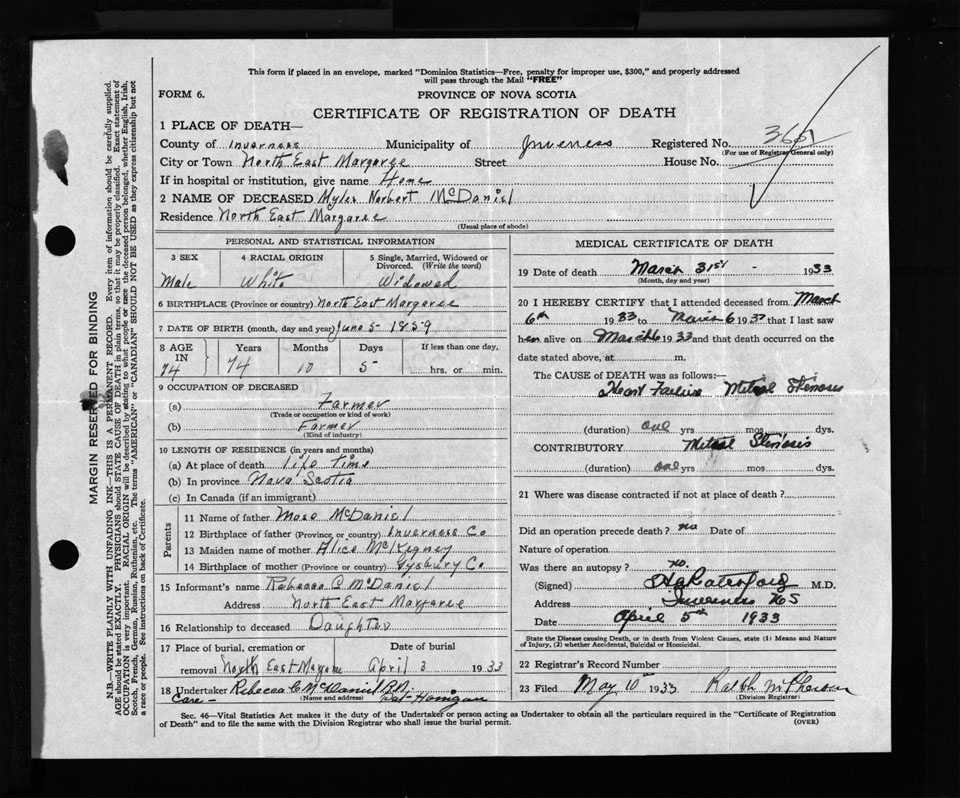 This form if placed in an envelope, marked "Dominion Statistics—Free, penalty for improper use, $300," and properly addressed
will pass through the Mail "FREE"
FORM 6.
PROVINCE OF NOVA SCOTIA
CERTIFICATE OF REGISTRATION OF DEATH
1 PLACE OF DEATH—
County of Inverness Municipality of Inverness Registered No. 3651
(For use of Registrar General only)
City or Town North East Margaree Street House No.
If in hospital or institution, give name Home
2 NAME OF DECEASED Myles Norbert McDaniel
Residence North East Margaree
(Usual place of abode)
PERSONAL AND STATISTICAL INFORMATION
3 SEX 4 RACIAL ORIGIN 5 Single, Married, Widowed or Divorced. (Write the word)
Male White Widowed
6 BIRTHPLACE (Province or country) North East Margaree
7 DATE OF BIRTH (month, day and year) June 5 - 1859
8 AGE IN Years Months Days If less than one day,
74 74 10 5 hrs. or min.
9 OCCUPATION OF DECEASED
(a) Farmer
(Trade or occupation or kind of work)
(b) Farmer
(Kind of industry)
10 LENGTH OF RESIDENCE (in years and months)
(a) At place of death life Time
(b) In province Nova Scotia
(c) In Canada (if an immigrant)
Parents
11 Name of father Mose McDaniel
12 Birthplace of father (Province or country) Inverness Co
13 Maiden name of mother Alice McKegney
14 Birthplace of mother (Province or country) Gysbury Co
15 Informant's name Rebecca C McDaniel
Address North East Margaree
16 Relationship to deceased Daughter
17 Place of burial, cremation or Date of burial
removal North East Margaree April 3 1933
18 Undertaker Rebecca C McDaniel
(Name and address)
Care -
MEDICAL CERTIFICATE OF DEATH
19 Date of death March 31st - 1933
(Month, day and year)
20 I HEREBY CERTIFY that I attended deceased from March
6th 1933 to March 6 1933 that I last saw
him alive on March 6 1933 and that death occurred on the
date stated above, at m.
The CAUSE of DEATH was as follows:—
Heart Failure Metral Stenosis
(duration) one yrs mos dys.
CONTRIBUTORY Metral Stenosis
(duration) one yrs mos dys.
21 Where was disease contracted if not at place of death?
Did an operation precede death? no Date of
Nature of operation
Was there an autopsy? no.
(Signed) M.D.
Address Inverness NS
Date April 5th 1933
State the Disease causing Death, or in death from Violent Causes, state (1) Means and Nature
of Injury, (2) whether Accidental, Suicidal or Homicidal.
22 Registrar's Record Number
23 Filed May 10th 1933 Ralph McPherson
(Division Registrar)
Sec. 46—Vital Statistics Act makes it the duty of the Undertaker or person acting as Undertaker to obtain all the particulars required in the "Certificate of Registration
of Death" and to file the same with the Division Registrar who shall issue the burial permit. (OVER)
MARGIN RESERVED FOR BINDING
N.B.—WRITE PLAINLY WITH UNFADING INK—THIS IS A PERMANENT RECORD. Every item of information should be carefully supplied.
AGE should be stated EXACTLY. PHYSICIANS should STATE CAUSE OF DEATH in plain terms, so that it may be properly classified. Exact statement of
OCCUPATION is very important. RACIAL ORIGIN will be described by stating to what people or race the deceased person belonged, whether English, Irish,
Scotch, French, German, Russian, Ruthenian, etc. The terms "AMERICAN" or "CANADIAN" SHOULD NOT BE USED as they express citizenship but not
a race or people. See instructions on back of Certificate.